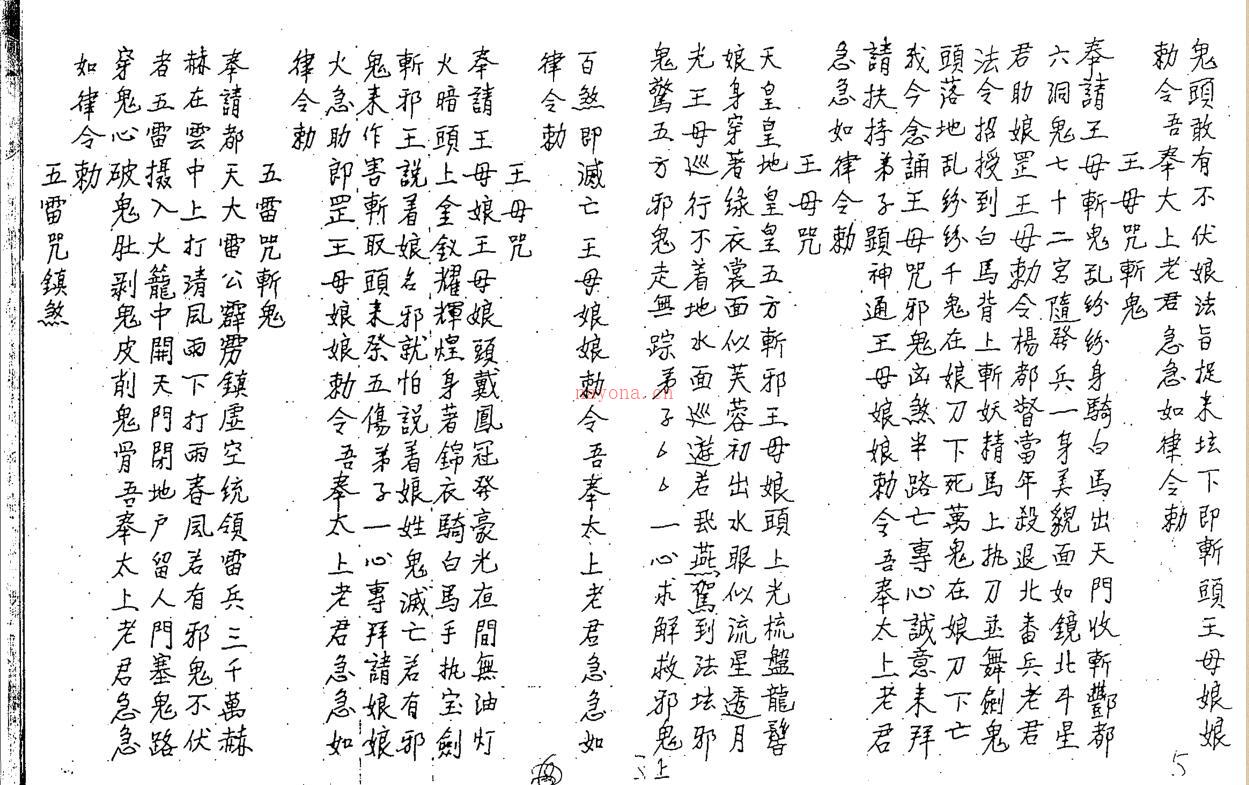 鬼頭敢有不伏娘法旨捉来坛下即斬頭王母娘娘
勅令吾奉大上老君急急如律令勅
王母咒斬鬼
奉請王母斬鬼乱纷纷身騎白馬出天門收斬酆都
六洞鬼七十二宮隨發兵一身美貌面如鏡北斗星
君助娘罡王母勅令楊都督當年殺退北番兵老君
法令招授到白馬背上斬妖精馬上执刀並舞劍鬼
頭落地乱纷纷千鬼在娘刀下死萬鬼在娘刀下亡
我今念誦王母咒邪鬼凶煞半路亡專心誠意来拜
請扶持弟子顕神通王母娘娘勅令吾奉太上老君
急急如律令勅
王母咒
天皇皇地皇皇五方斬邪王母娘頭上光梳盤龍髻
娘身穿著绿衣裳面似芙蓉初出水眼似流星透月
光王母巡行不着地水面巡遊若飛燕駕到法坛邪
鬼驚五方邪鬼走無踪弟子厶厶一心求解救邪鬼
百煞即滅亡王母娘娘勅令吾奉太上老君急急如
律令勅
王母咒
奉請王母娘王母娘頭戴鳳冠發豪光夜間無油灯
火暗頭上金釵耀輝煌身著錦衣騎白馬手执宝劍
斬邪王説着娘名邪就怕説着娘姓鬼滅亡若有邪
鬼来作害斬取頭来祭五傷弟子一心專拜請娘娘
火急助郎罡王母娘娘勅令吾奉太上老君急急如
律令勅
五雷咒斬鬼
奉請都天大雷公霹雳鎮虚空统領雷兵三千萬赫
赫在雲中上打清風雨下打雨春風若有邪鬼不伏
者五雷攝入火籠中開天門閉地户留人門塞鬼路
穿鬼心破鬼肚剥鬼皮削鬼骨吾奉太上老君急急
如律令勅
五雷咒鎮煞
5
上
nayona.cn